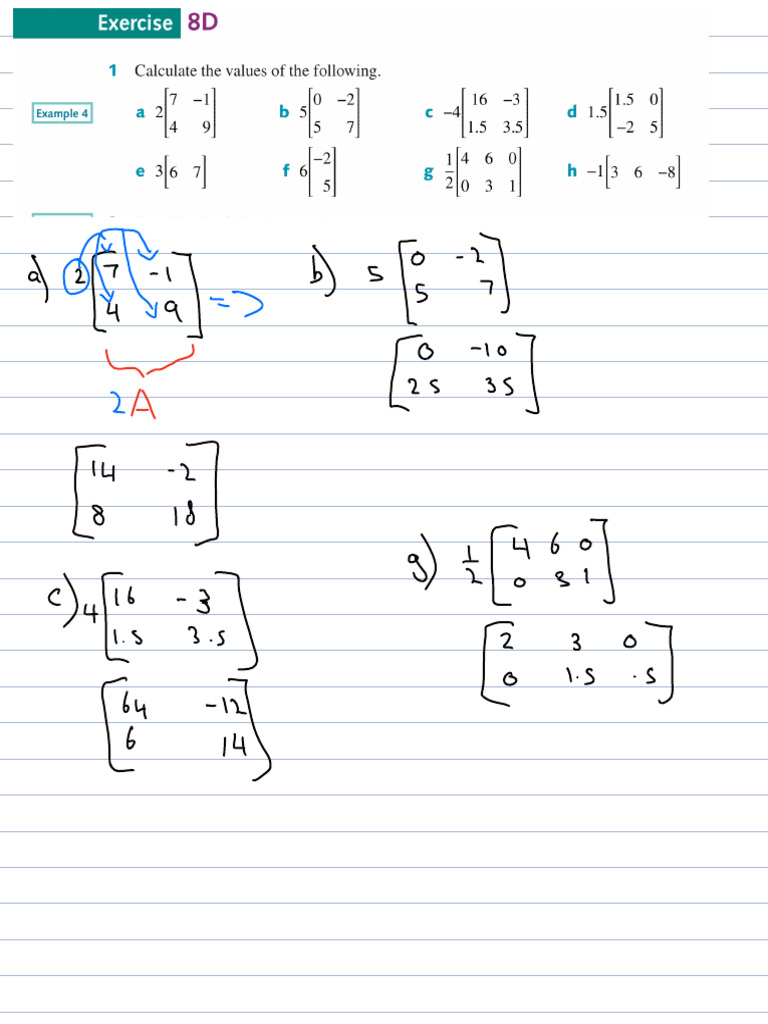 Exercise 8D
1 Calculate the values of the following.
Example 4
a 2[7 −1
4 9]
b 5[0 −2
5 7]
c −4[16 −3
1.5 3.5]
d 1.5[1.5 0
−2 5]
e 3[6 7]
f 6[−2
5]
g 1/2[4 6 0
0 3 1]
h −1[3 6 −8]
a) 2[7 -1
4 9] =>
2A
[14 -2
8 18]
b) 5[0 -2
5 7]
[0 -10
25 35]
c) 4[16 -3
1.5 3.5]
[64 -12
6 14]
g) 1/2[4 6 0
0 3 1]
[2 3 0
0 1.5 .5]